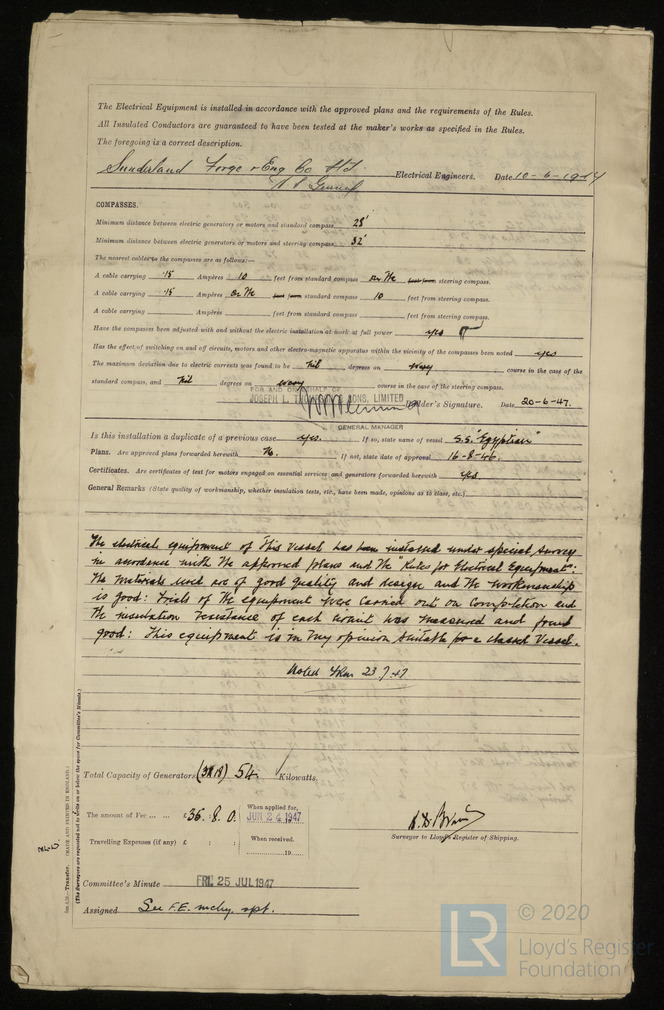 The Electrical Equipment is installed in accordance with the approved plans and the requirements of the Rules.
All Insulated Conductors are guaranteed to have been tested at the maker's works as specified in the Rules.
The foregoing is a correct description.
Sunderland Forge & Eng Co Ltd. Electrical Engineers. Date 10-6-1947
COMPASSES.
Minimum distance between electric generators or motors and standard compass 25'
Minimum distance between electric generators or motors and steering compass 32'
The nearest cables to the compasses are as follows:—
A cable carrying .15 Ampères 10 feet from standard compass on the feet from steering compass.
A cable carrying .15 Ampères on the feet from standard compass 10 feet from steering compass.
A cable carrying Ampères feet from standard compass feet from steering compass.
Have the compasses been adjusted with and without the electric installation at work at full power yes
Has the effect of switching on and off circuits, motors and other electro-magnetic apparatus within the vicinity of the compasses been noted yes
The maximum deviation due to electric currents was found to be Nil degrees on every course in the case of the
standard compass, and Nil degrees on every course in the case of the steering compass.
FOR AND ON BEHALF OF
JOSEPH L. THOMPSON & SONS, LIMITED Builder's Signature. Date 20-6-47.
GENERAL MANAGER
Is this installation a duplicate of a previous case yes. If so, state name of vessel S.S. "Egyptian"
Plans. Are approved plans forwarded herewith No. If not, state date of approval 16-8-46.
Certificates. Are certificates of test for motors engaged on essential services and generators forwarded herewith yes.
General Remarks (State quality of workmanship, whether insulation tests, etc., have been made, opinions as to class, etc.)
The electrical equipment of this vessel has been installed under special survey
in accordance with the approved plans and the "Rules for Electrical Equipment":
the materials used are of good quality and design and the workmanship
is good: trials of the equipment were carried out on completion and
the insulation resistance of each circuit was measured and found
good: This equipment is in my opinion suitable for a classed vessel.
Noted 23.7.47
Total Capacity of Generators (3x18) 54 Kilowatts.
The amount of Fee ... ... £36.8.0. When applied for, JUN 24 1947
Travelling Expenses (if any) £ : : When received. 19
Surveyor to Lloyd's Register of Shipping.
Committee's Minute FRI. 25 JUL 1947
Assigned See F.E. mchy. rpt.
Transfer. (MADE AND PRINTED IN ENGLAND.)
(The Surveyors are requested not to write on or below the space for Committee's Minute.)
LR © 2020
Lloyd's Register
Foundation